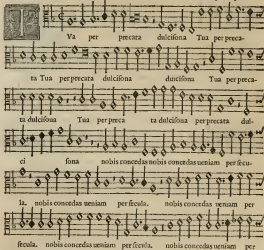 TVa per precata dulcisona Tua per preca-
ta Tua per precata dulcisona dulcisona Tua per preca-
ta dulcisona Tua per preca ta per precata dulcisona dul-
ci sona nobis concedas nobis concedas ueniam per secu-
la, nobis concedas ueniam per secula. nobis concedas ueniam per
secula. nobis concedas ueniam per secula. nobis concedas ueniam per